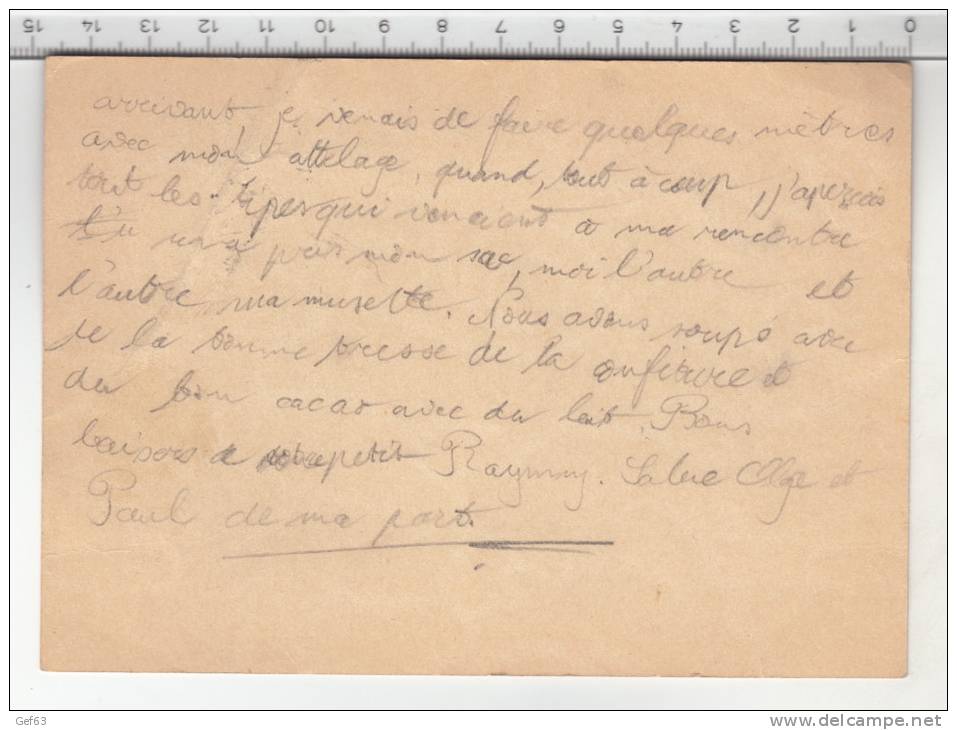 15 14 13 12 11 10 9 8 7 6 5 4 3 2 1 0
arrivant, je venais de faire quelques mètres
avec mon attelage, quand, tout à coup, j'aperçois
tout les types qui venaient à ma rencontre
pris mon sac, moi l'autre et
l'autre ma musette. Nous avons soupé avec
de la bonne tresse de la confiture et
du bon cacao avec du lait. Bons
baisers a petit Raymny. Salue Olga et
Paul de ma part.
Gef63
www.delcampe.net